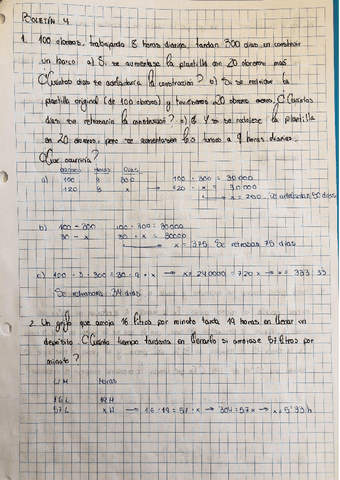 BOLETÍN 4
1. 100 obreros, trabajando 8 horas diarias, tardan 300 días en construir
un barco a) Si se aumentase la plantilla con 20 obreros más
¿Cuántos días se adelantaría la construcción? b) Si se redujese la
plantilla original (de 100 obreros) y tuviéramos 20 obreros menos. ¿Cuántos
días se retrasaría la construcción? c) ¿Y si se redujese la plantilla
en 20 obreros, pero se aumentaran las horas a 9 horas diarias.
¿Qué ocurriría?
obreros Horas Días
a) 100 8 300 100 · 300 = 30000
120 8 x → 120 · x = 30000
→ x = 250 se adelantan 50 días
b) 100 - 300 100 · 300 = 30000
80 - x 80 · x = 30000
→ x = 375 Se retrasan 75 días
c) 100 · 8 · 300 = 80 · 9 · x → x = 240000 = 720x → x = 333'33
Se retrasaría 34 días
2. Un grifo que arroja 16 litros por minuto tarda 19 horas en llenar un
depósito ¿Cuánto tiempo tardaría en llenarlo si arrojase 57 litros por
minuto?
L/M Horas
16 L 19 H
57 L x H → 16 · 19 = 57 · x → 304 = 57x → x = 5'33 h